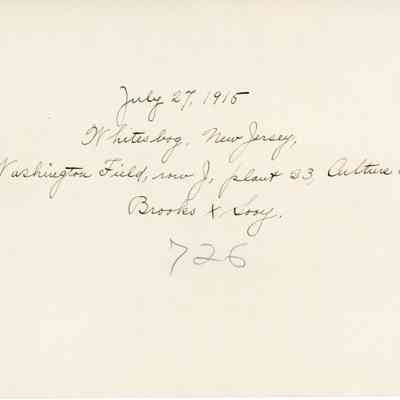 July 27, 1915
Whitesbog, New Jersey,
Washington Field, row J, plant 23, Culture
Brooks X Sooy.
726